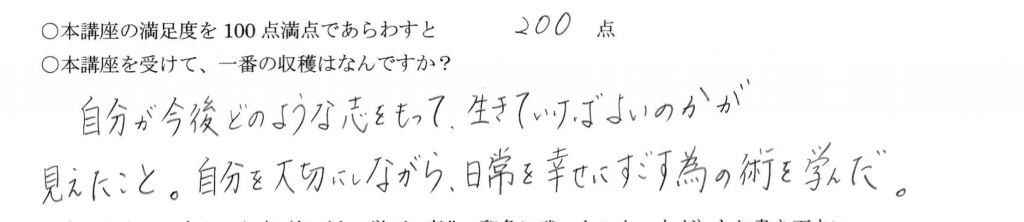 ○本講座の満足度を100点満点であらわすと 200 点
○本講座を受けて、一番の収穫はなんですか？
自分が今後どのような志をもって、生きていけばよいのかが
見えたこと。自分を大切にしながら、日常を幸せにすごす為の術を学んだ。